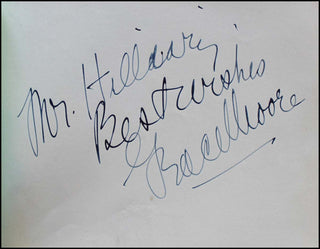 Mr. Hilldair,
Best wishes
Grace Moore